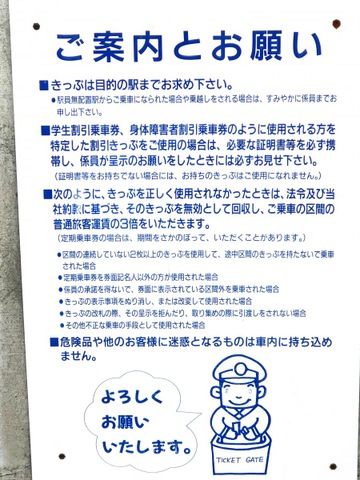 ご案内とお願い
■きっぷは目的の駅までお求め下さい。
●駅員無配置駅からご乗車になられた場合や乗越しをされる場合は、すみやかに係員までお
申し出下さい。
■学生割引乗車券、身体障害者割引乗車券のように使用される方を
特定した割引きっぷをご使用の場合は、必要な証明書等を必ず携
帯し、係員が呈示のお願いをしたときには必ずお見せ下さい。
（証明書等をお持ちでない場合には、お持ちのきっぷはご使用になれません。）
■次のように、きっぷを正しく使用されなかったときは、法令及び当
社約款に基づき、そのきっぷを無効として回収し、ご乗車の区間の
普通旅客運賃の3倍をいただきます。
（定期乗車券の場合は、期間をさかのぼって、いただくことがあります。）
●区間の連続していない2枚以上のきっぷを使用して、途中区間のきっぷを持たないで乗車
された場合
●定期乗車券を券面記名人以外の方が使用された場合
●係員の承諾を得ないで、券面に表示されている区間外を乗車された場合
●きっぷの表示事項をぬり消し、または改変して使用された場合
●きっぷの改札の際、その呈示を拒んだり、取り集めの際に引渡しをされない場合
●その他不正な乗車の手段として使用された場合
■危険品や他のお客様に迷惑となるものは車内に持ち込め
ません。
よろしく
お願い
いたします。
TICKET GATE